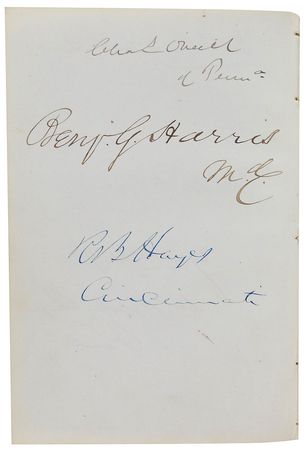 Chas O'Neill
of Penna.
Benj. G. Harris
Md.
R B Hayes
Cincinnati